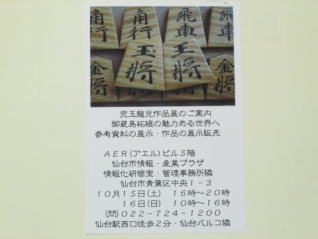 角行
飛車
玉將
王將
金將
金將
児玉龍兒作品展のご案内
御蔵島柘植の魅力ある世界へ
参考資料の展示・作品の展示販売
AER(アエル)ビル5階
仙台市情報・産業プラザ
情報化研修室・管理事務所隣
仙台市青葉区中央1-3
10月15日(土) 16時~20時
16日(日) 10時~16時
(問)022-724-1200
仙台駅西口徒歩2分・仙台パルコ隣